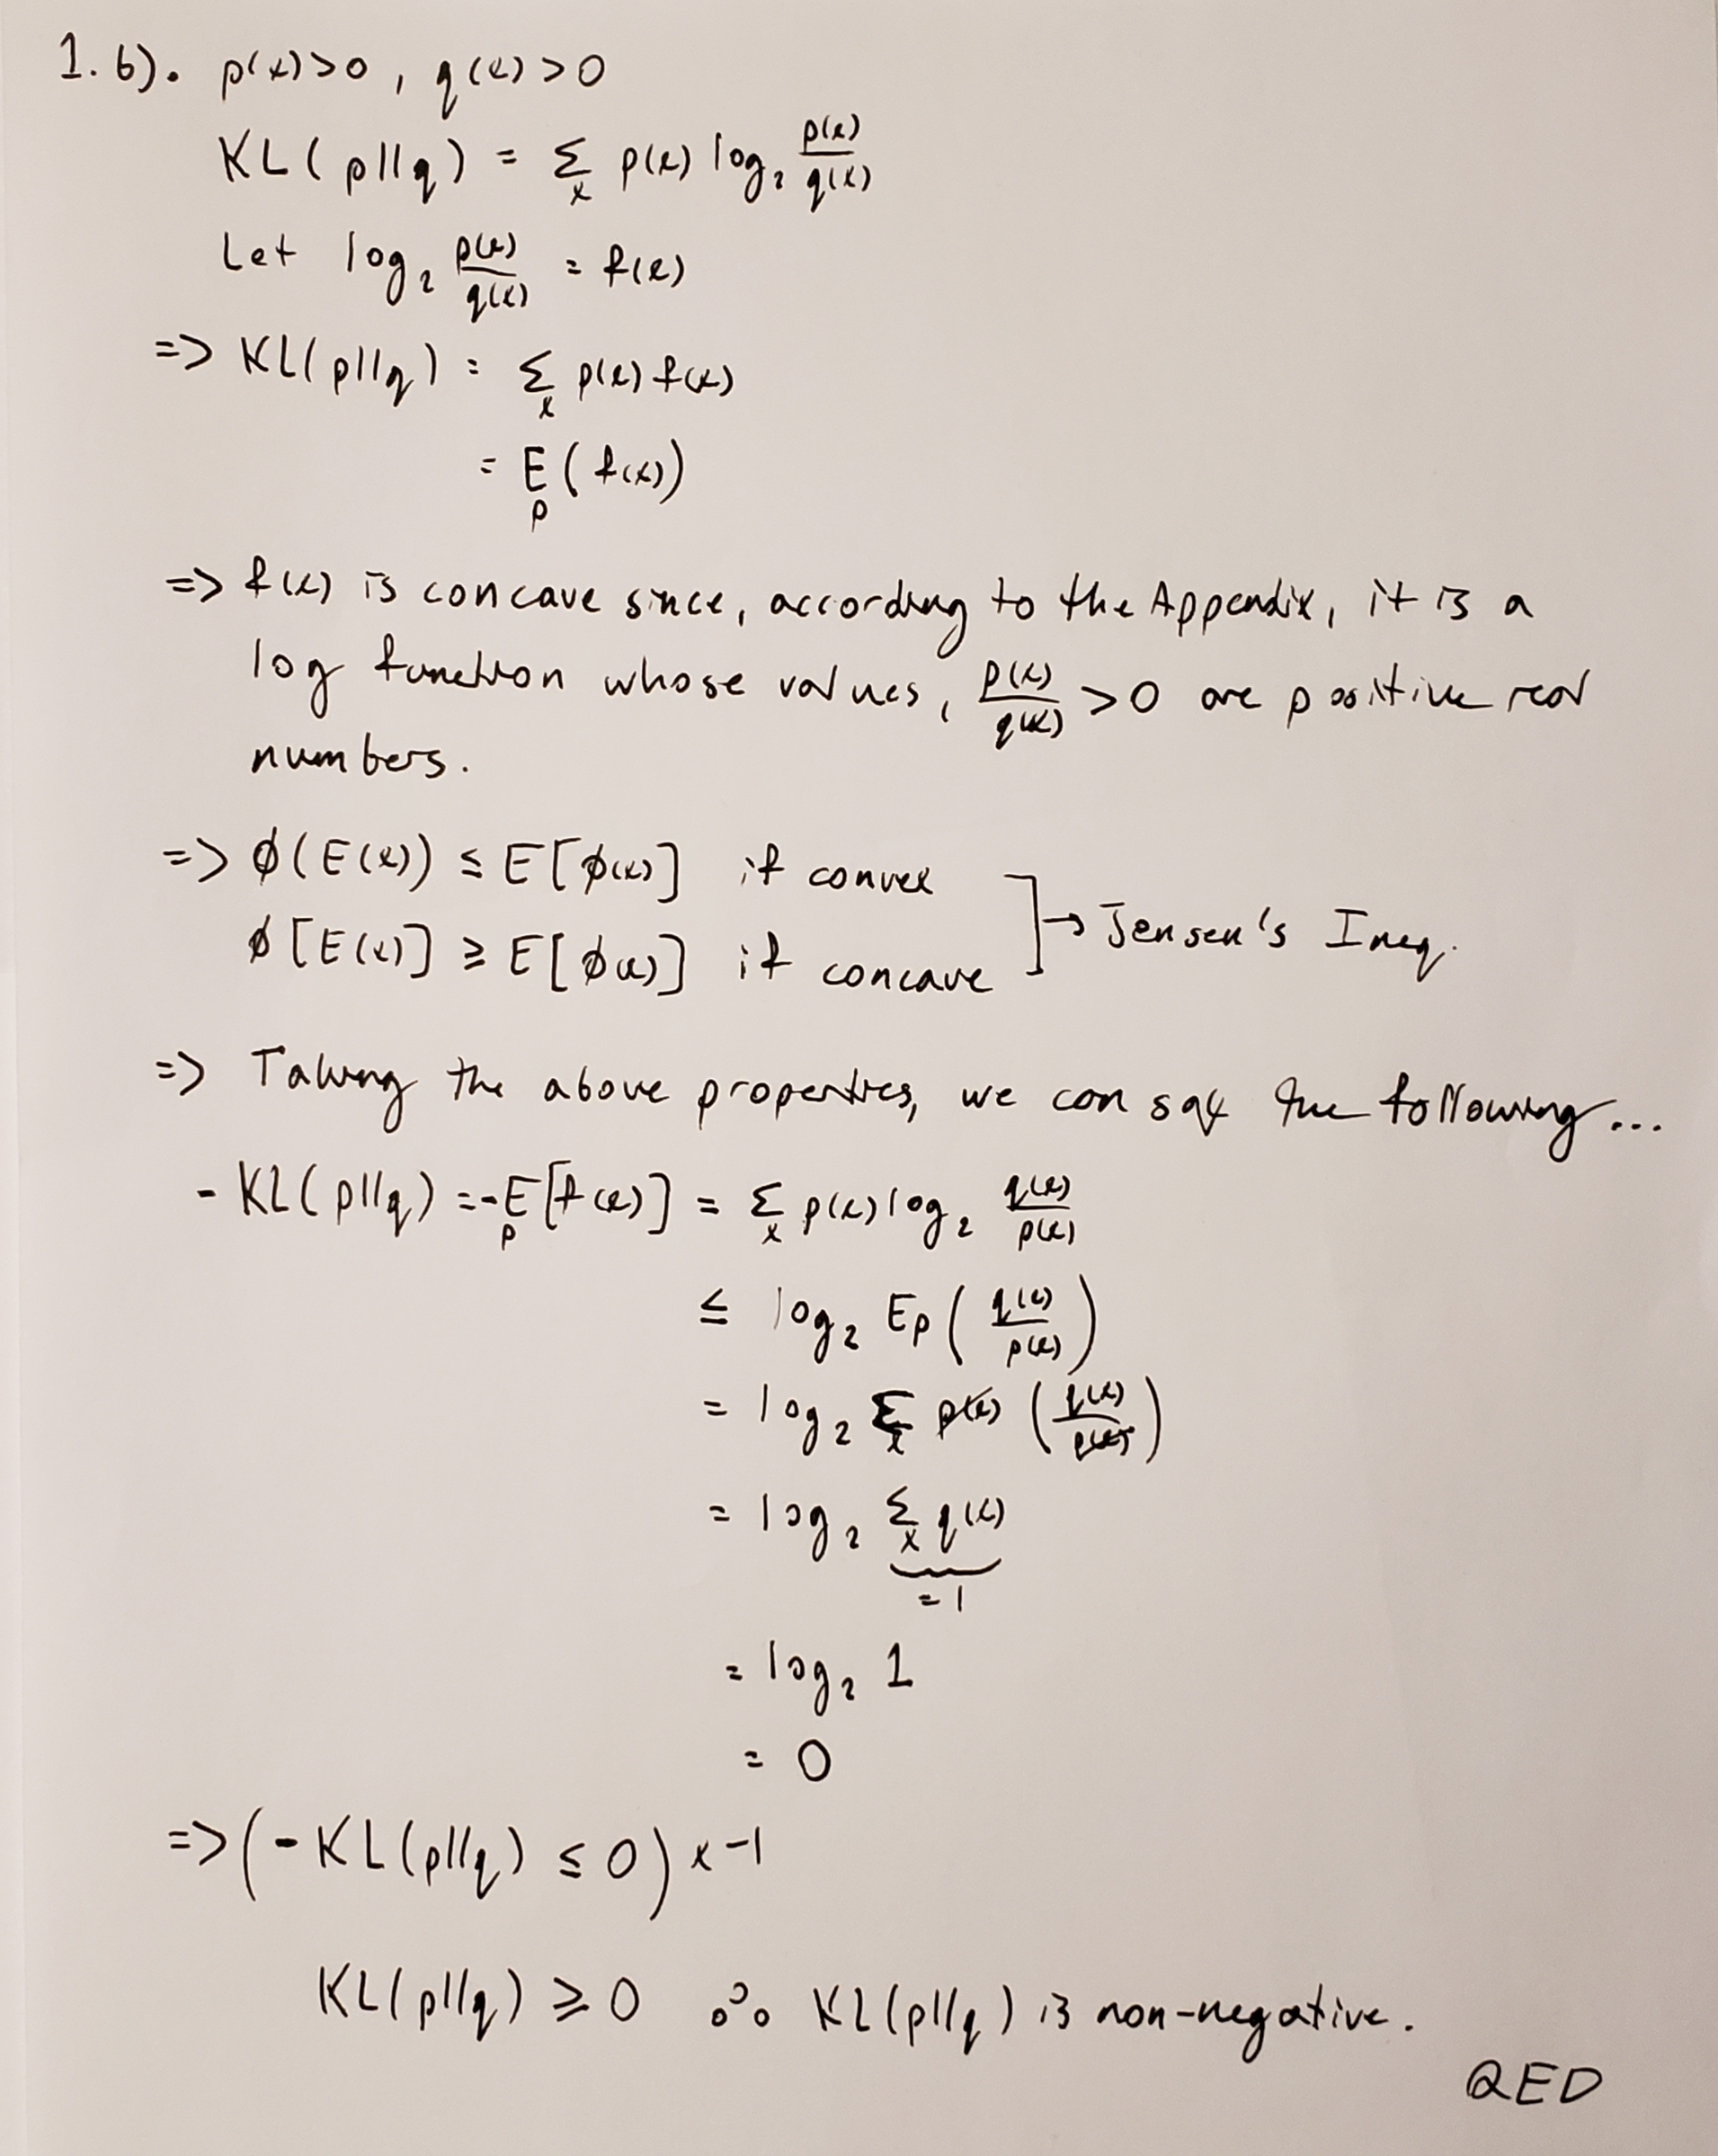 1. b). p(x)>0, q(x)>0
KL(p||q) = Σ_x p(x) log₂ p(x)/q(x)
Let log₂ p(x)/q(x) = f(x)
=> KL(p||q) = Σ_x p(x) f(x)
= E_p (f(x))
=> f(x) is concave since, according to the Appendix, it is a
log function whose values, p(x)/q(x) > 0 are positive real
numbers.
=> ϕ(E(x)) ≤ E[ϕ(x)] if convex
ϕ[E(x)] ≥ E[ϕ(x)] if concave ] → Jensen's Ineq.
=> Taking the above properties, we can say the following...
- KL(p||q) = -E_p[f(x)] = Σ_x p(x) log₂ q(x)/p(x)
≤ log₂ Ep (q(x)/p(x))
= log₂ Σ_x p(x) (q(x)/p(x))
= log₂ Σ_x q(x)
= 1
= log₂ 1
= 0
=> (-KL(p||q) ≤ 0) x -1
KL(p||q) ≥ 0 ∴ KL(p||q) is non-negative.
QED